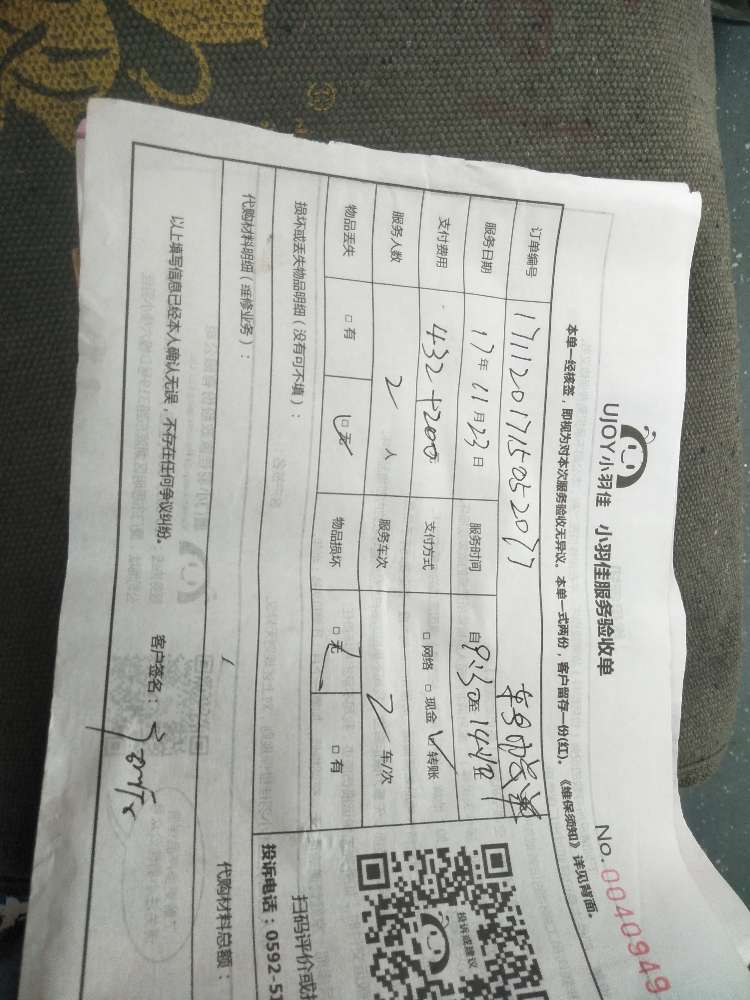 UJOY小羽佳 小羽佳服务验收单
No. 0040949
本单一经核签，即视为对本次服务验收无异议。本单一式两份，客户留存一份(红)。《维保须知》详见背面。
订单编号
服务日期 17年 11月 23日 服务时间 自9:30至
支付费用 432+200 支付方式 □网络 □现金 □转账
服务人数 2 人 服务车次 2 车/次
物品丢失 □有 □无 物品损坏 □无 □有
损坏或丢失物品明细（没有可不填）：
代购材料明细（维修业务）：
代购材料总额：
投诉或建议
扫码评价或
投诉电话：0592-5
以上填写信息已经本人确认无误，不存在任何争议纠纷。 客户签名：